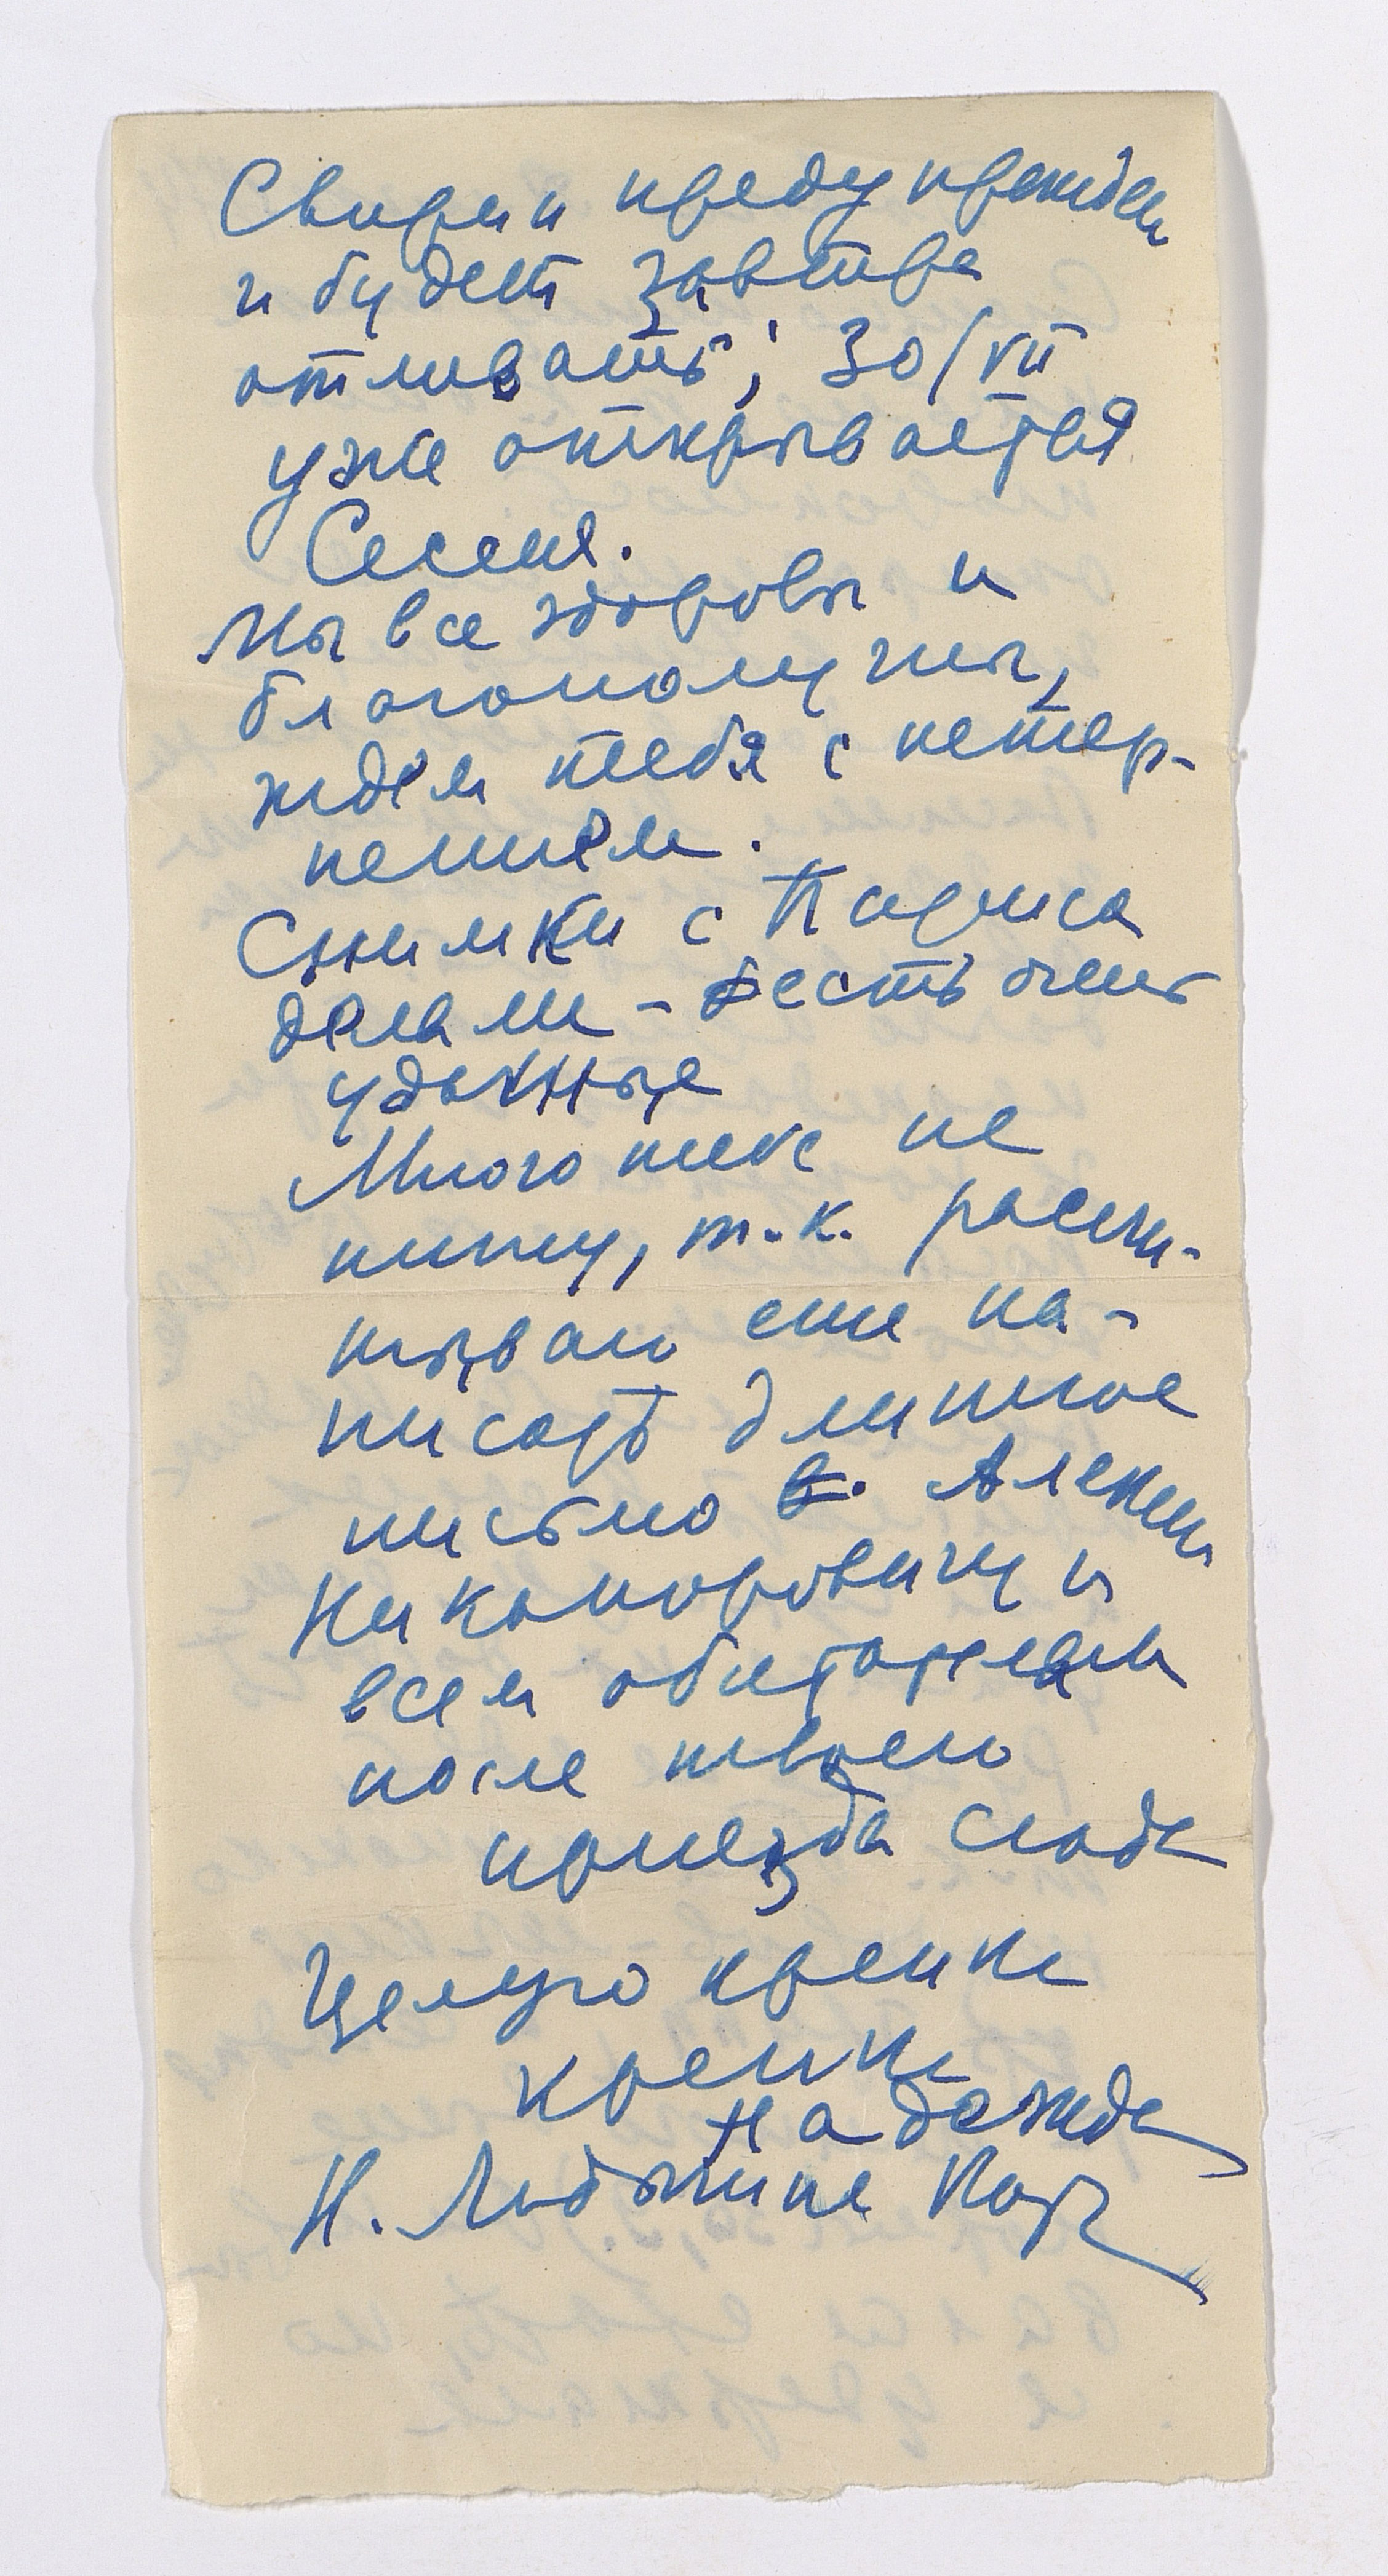 Свирин предупрежден
и будет завтра
отливать; 30/VII
уже открывается
Сессия.
Мы все здоровы и
благополучны,
ждем тебя с нетер-
пением.
Снимки с Париса
делали – есть очень
удачные
Много тебе не
пишу, т.к. рассчи-
тываю еще на-
писать длинное
письмо Алексею
Никаноровичу и
всем обитателям
после твоего
приезда сюда
Целую крепко
крепко
Надежда
Н. Ладыгина Котс